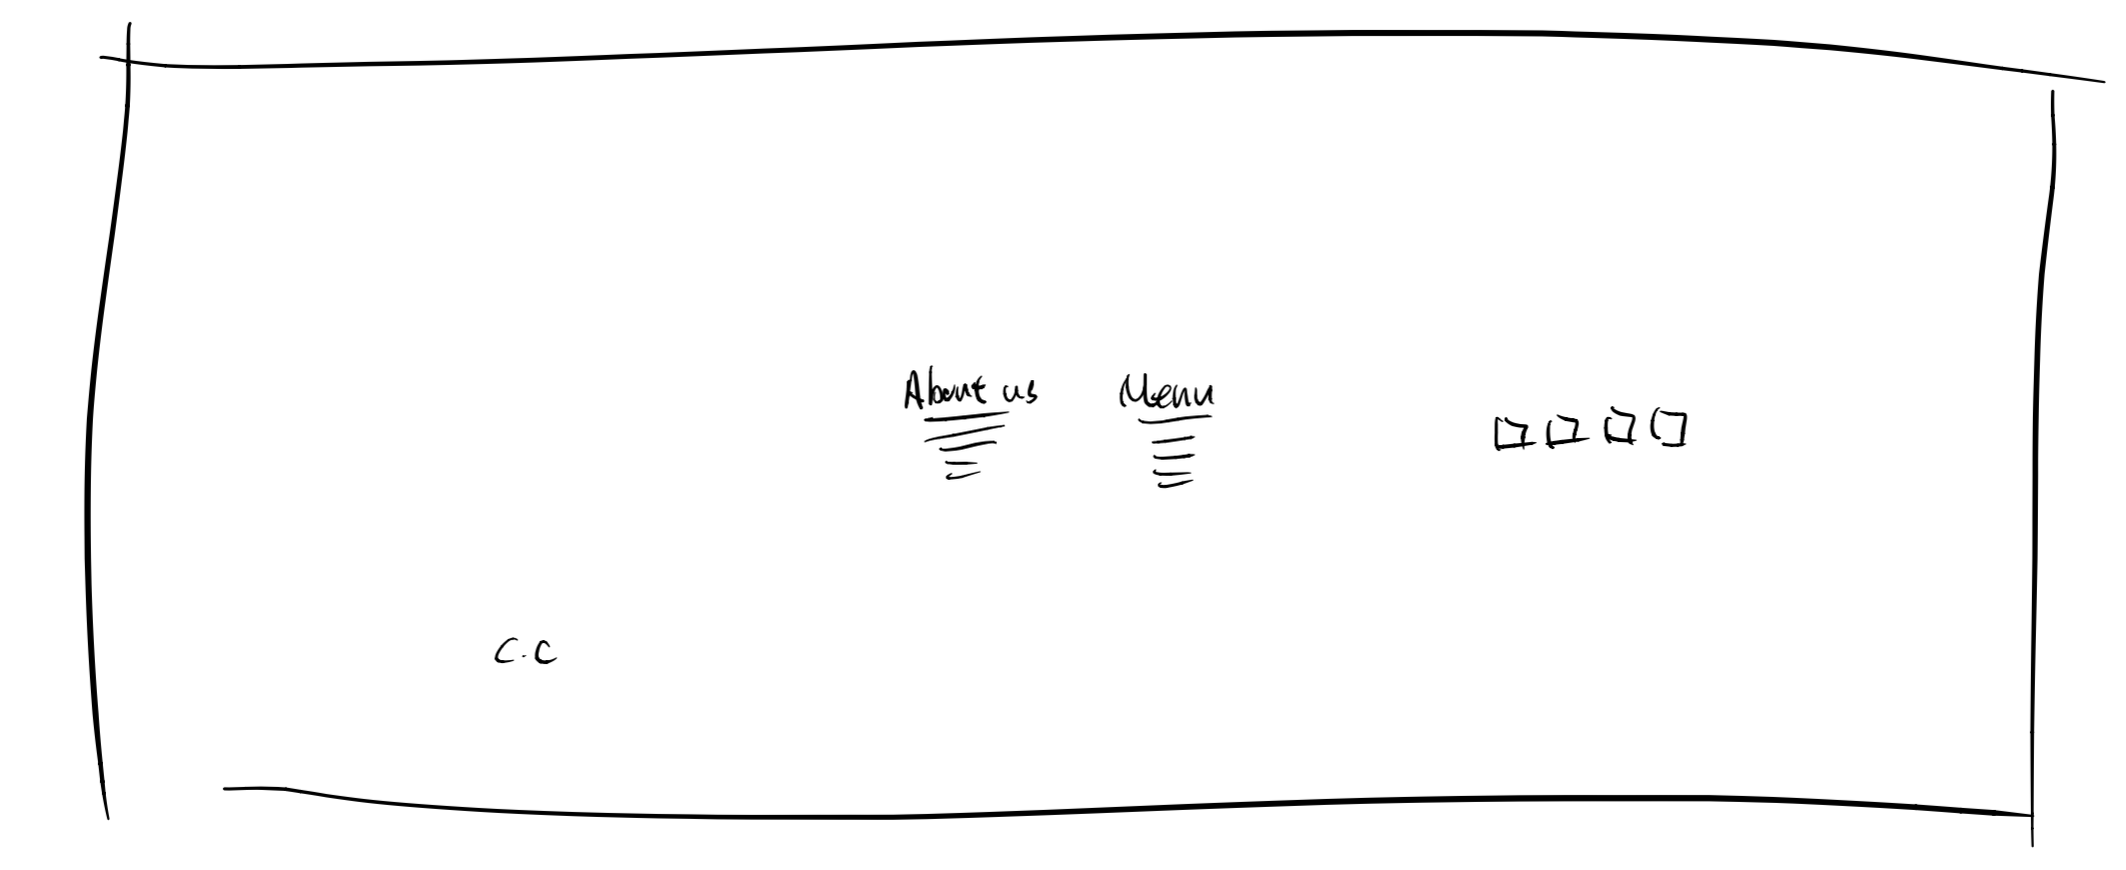 About us
Menu
C.C